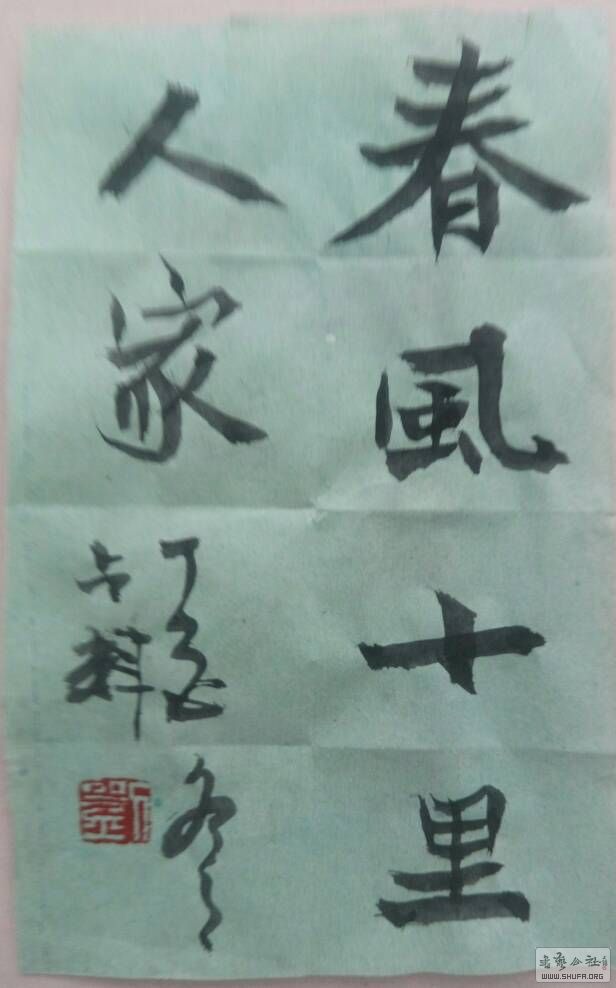 春風十里
人家
丁酉冬
书艺公社
WWW.SHUFA.ORG